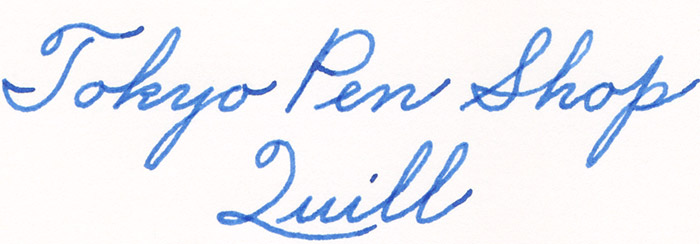 Tokyo Pen Shop
Quill